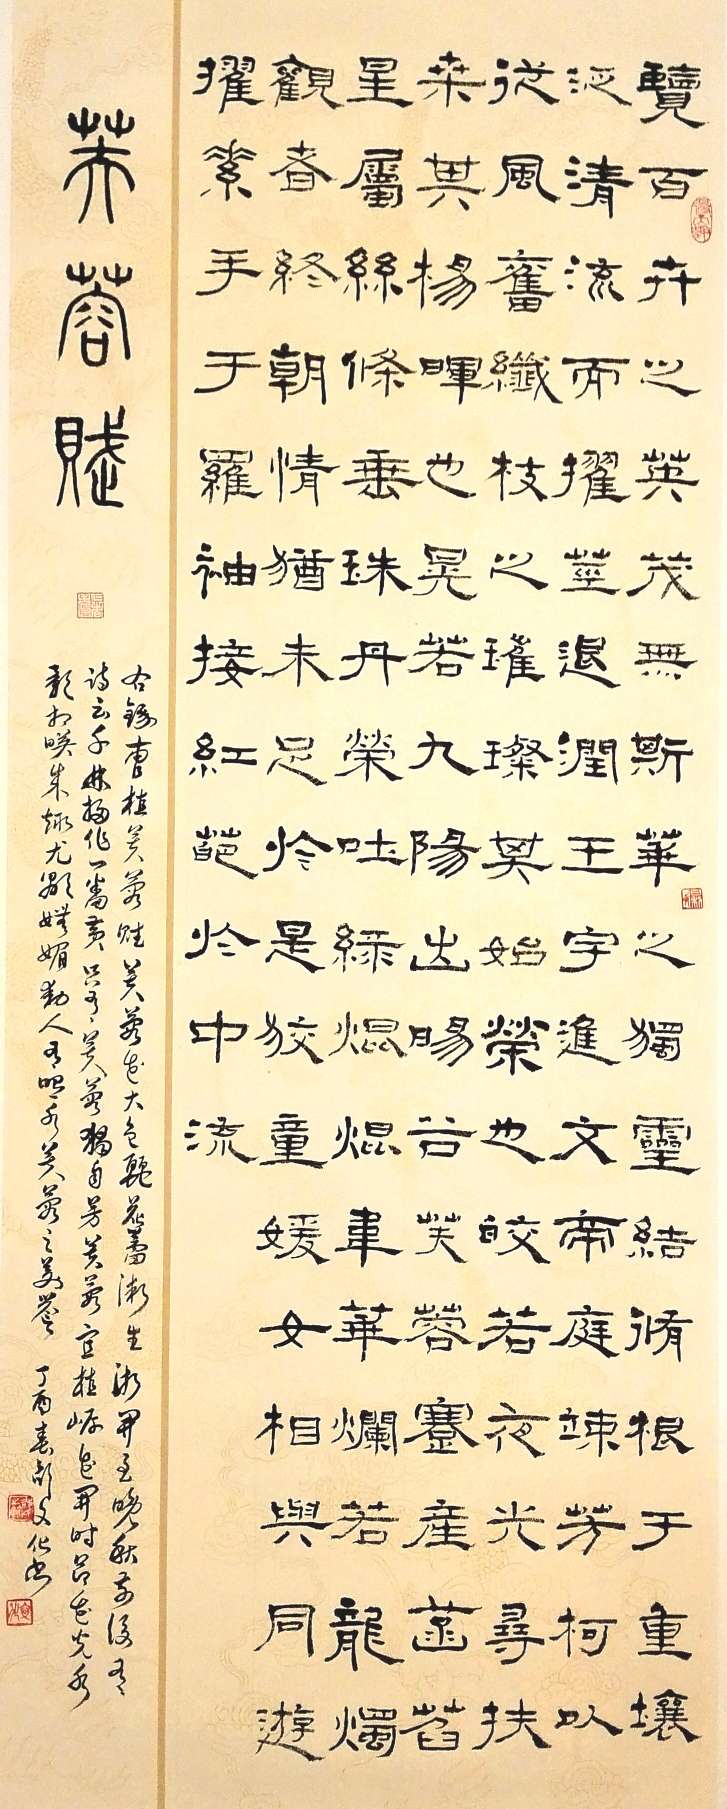 覽百卉之英茂無斯華之獨靈結脩根于重壤
泛清流而擢莖退潤王宇進文帝庭竦芳柯以
從風奮纖枝之璀璨其始榮也皎若夜光尋扶
桒其楊暉也晃若九陽出暘谷芙蓉蹇產菡萏
星屬絲條垂珠丹榮吐綠焜焜韋華爛若龍燭
觀者終朝情猶未足於是狡童媛女相與同遊
擢素手于羅袖接紅葩於中流
芙蓉賦
右錄曹植芙蓉賦芙蓉花大色麗花蕾漸生漸開至晚秋前後有
詩云千林掃作一番黃只有芙蓉獨自芳芙蓉宜植岸花開時节花光水
影相映成趣尤顯嬌媚動人有照水芙蓉之美譽
丁酉春郭文化書